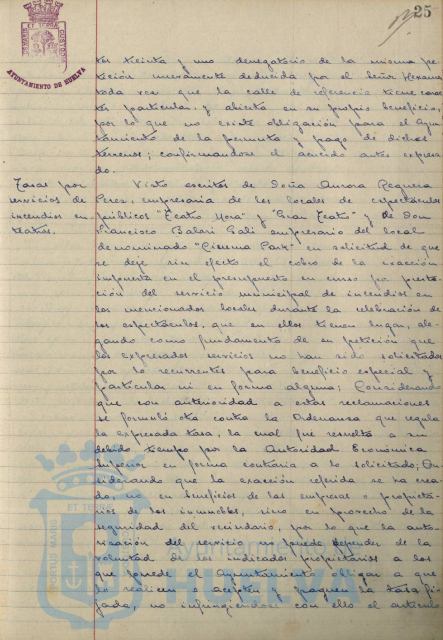 25
AYUNTAMIENTO DE HUELVA
tos treinta y uno denegatorio de la misma pe-
tición nuevamente deducida por el Señor
toda vez que la calle de referencia tiene carac-
ter particular y abierta en su propio beneficio,
por lo que no existe obligación para el Ayun-
tamiento de la permuta y pago de dichos
terrenos; confirmandose el acuerdo antes expresa-
do.
Tasas por
servicios de
incendios en
teatros.
Visto escritos de Doña Aurora Reguera
Perez, empresaria de los locales de espectáculos
públicos "Teatro Mora" y "Gran Teatro" y de Don
Francisco Balari Gali empresario del local
denominado "Cinema Park" en solicitud de que
se deje sin efecto el cobro de la exacción
impuesta en el presupuesto en curso por presta-
ción del servicio municipal de incendios en
los mencionados locales durante la celebración de
los espectáculos, que en ellos tienen lugar, ale-
gando como fundamento de su petición que
los expresados servicios no han sido solicitados
por lo recurrentes para beneficio especial y
particular ni en forma alguna; Considerando
que con anterioridad a estas reclamaciones
se formuló otra contra la Ordenanza que regula
la expresada tasa, la cual fué resuelta a su
debido tiempo por la Autoridad Económica
Superior en forma contraria a lo solicitado; Con-
siderando que la exacción referida se ha crea-
do, no en beneficios de las empresas o propieta-
rios de los inmuebles, sino en provecho de la
seguridad del vecindario, por lo que la auto-
rización del servicio no puede depender de la
voluntad de los indicados propietarios a los
que puede el Ayuntamiento obligar a que
lo realicen o acepten y paguen la tasa fi-
jada, no infringiendose con ello el artículo